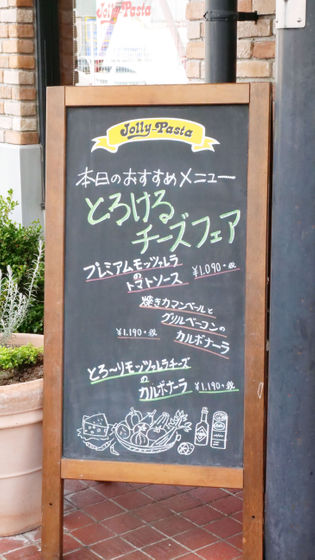 Jolly-Pasta
Jolly-Pasta
本日のおすすめメニュー
とろける
チーズフェア
プレミアムモッツァレラ
の
トマトソース
¥1,090・税
焼きカマンベールと
グリルベーコンの
カルボナーラ
¥1,190・税
とろ〜りモッツァレラチーズ
の
カルボナーラ
¥1,190・税